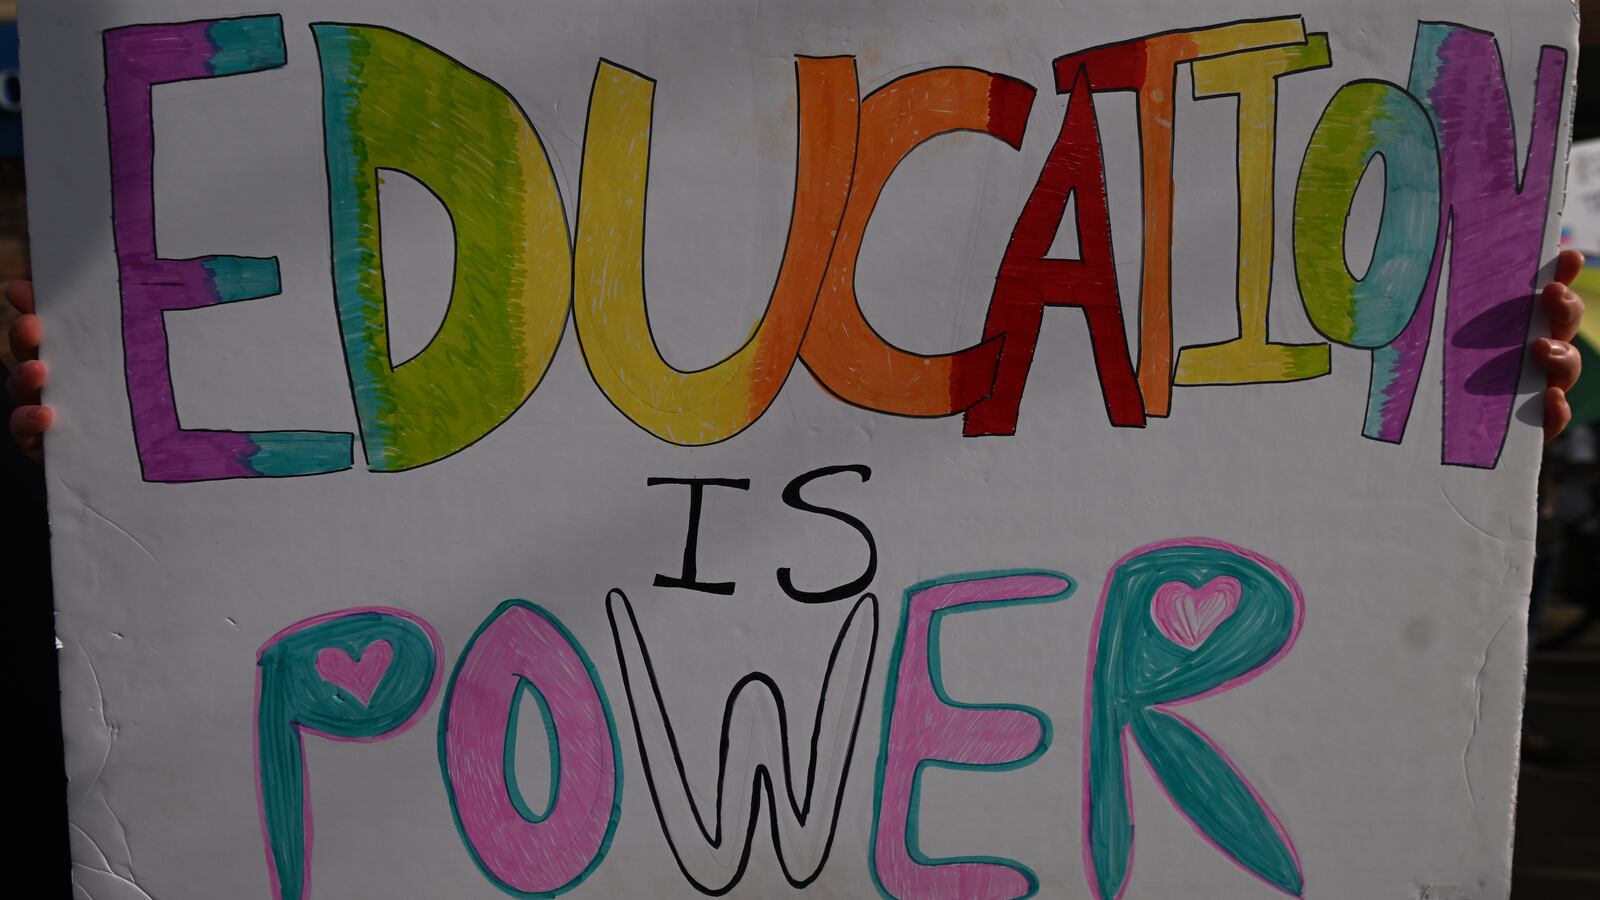 EDUCATION
IS
POWER